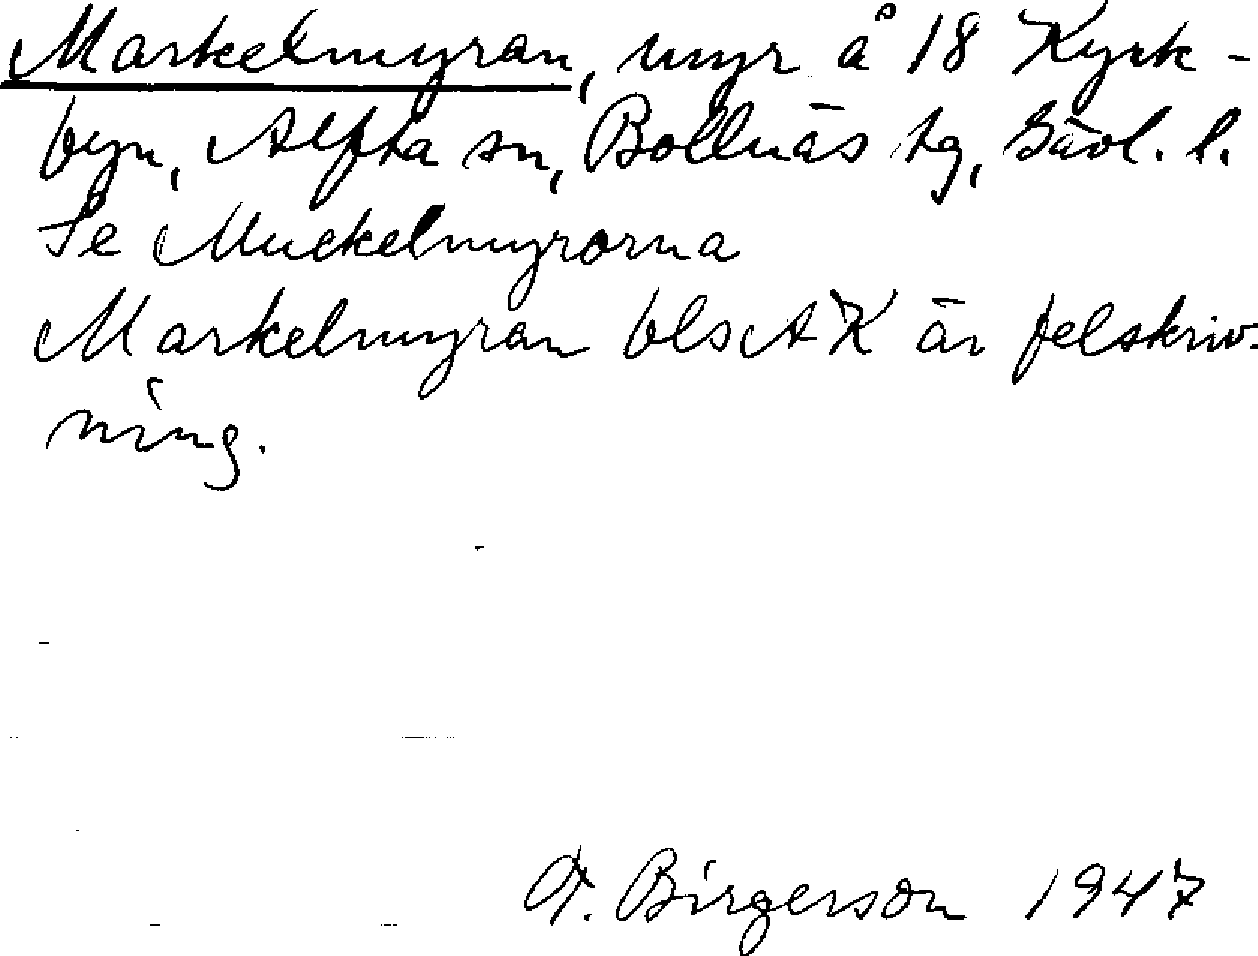 Markelmyran, myr å 18 Kyrk-
byn, Alfta sn, Bollnäs tg, Gävl. l.
Se Muckelmyrorna
Markelmyran bls AK är felskriv-
ning.
Birgerson 1947